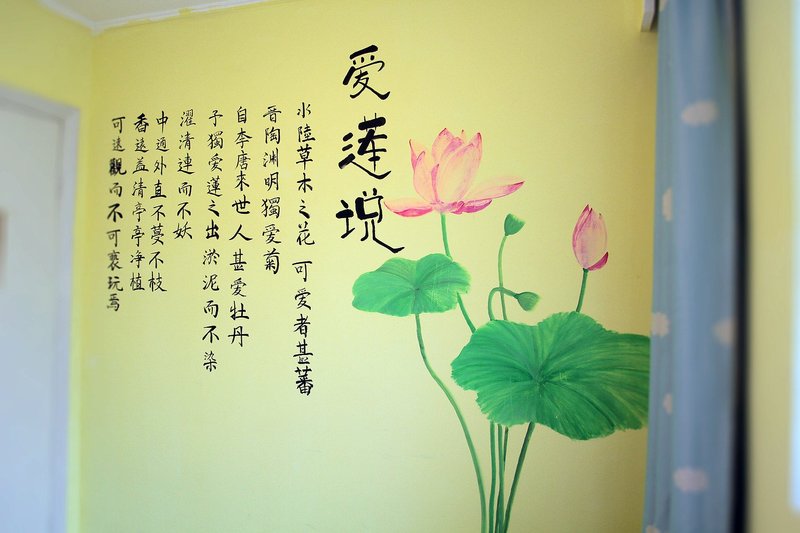 爱莲说
水陸草木之花可爱者甚蕃
晋陶渊明獨爱菊
自李唐来世人甚爱牡丹
予獨爱蓮之出淤泥而不染
濯清連而不妖
中通外直不蔓不枝
香遠益清亭亭净植
可遠觀而不可褻玩焉